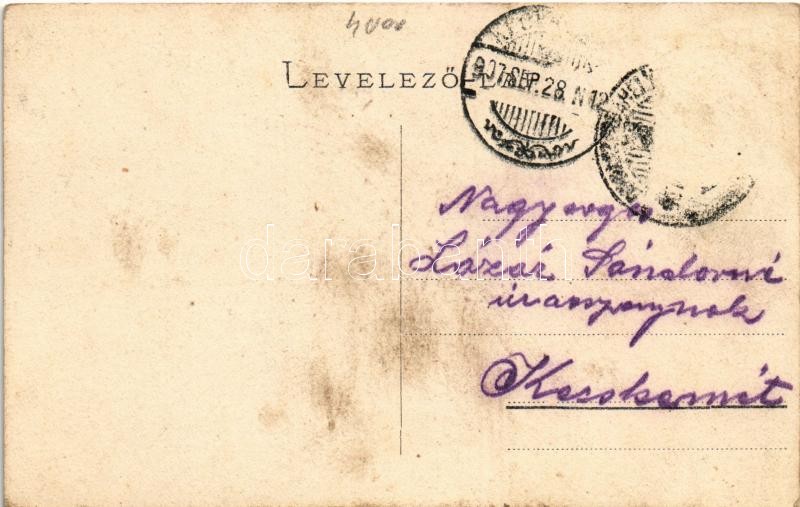 4000
LEVELEZŐ-LAP
907 SEP. 28. N 12
Nagysága
Lázár Sándorné
úrasszonynak
Kecskemét
darabanth